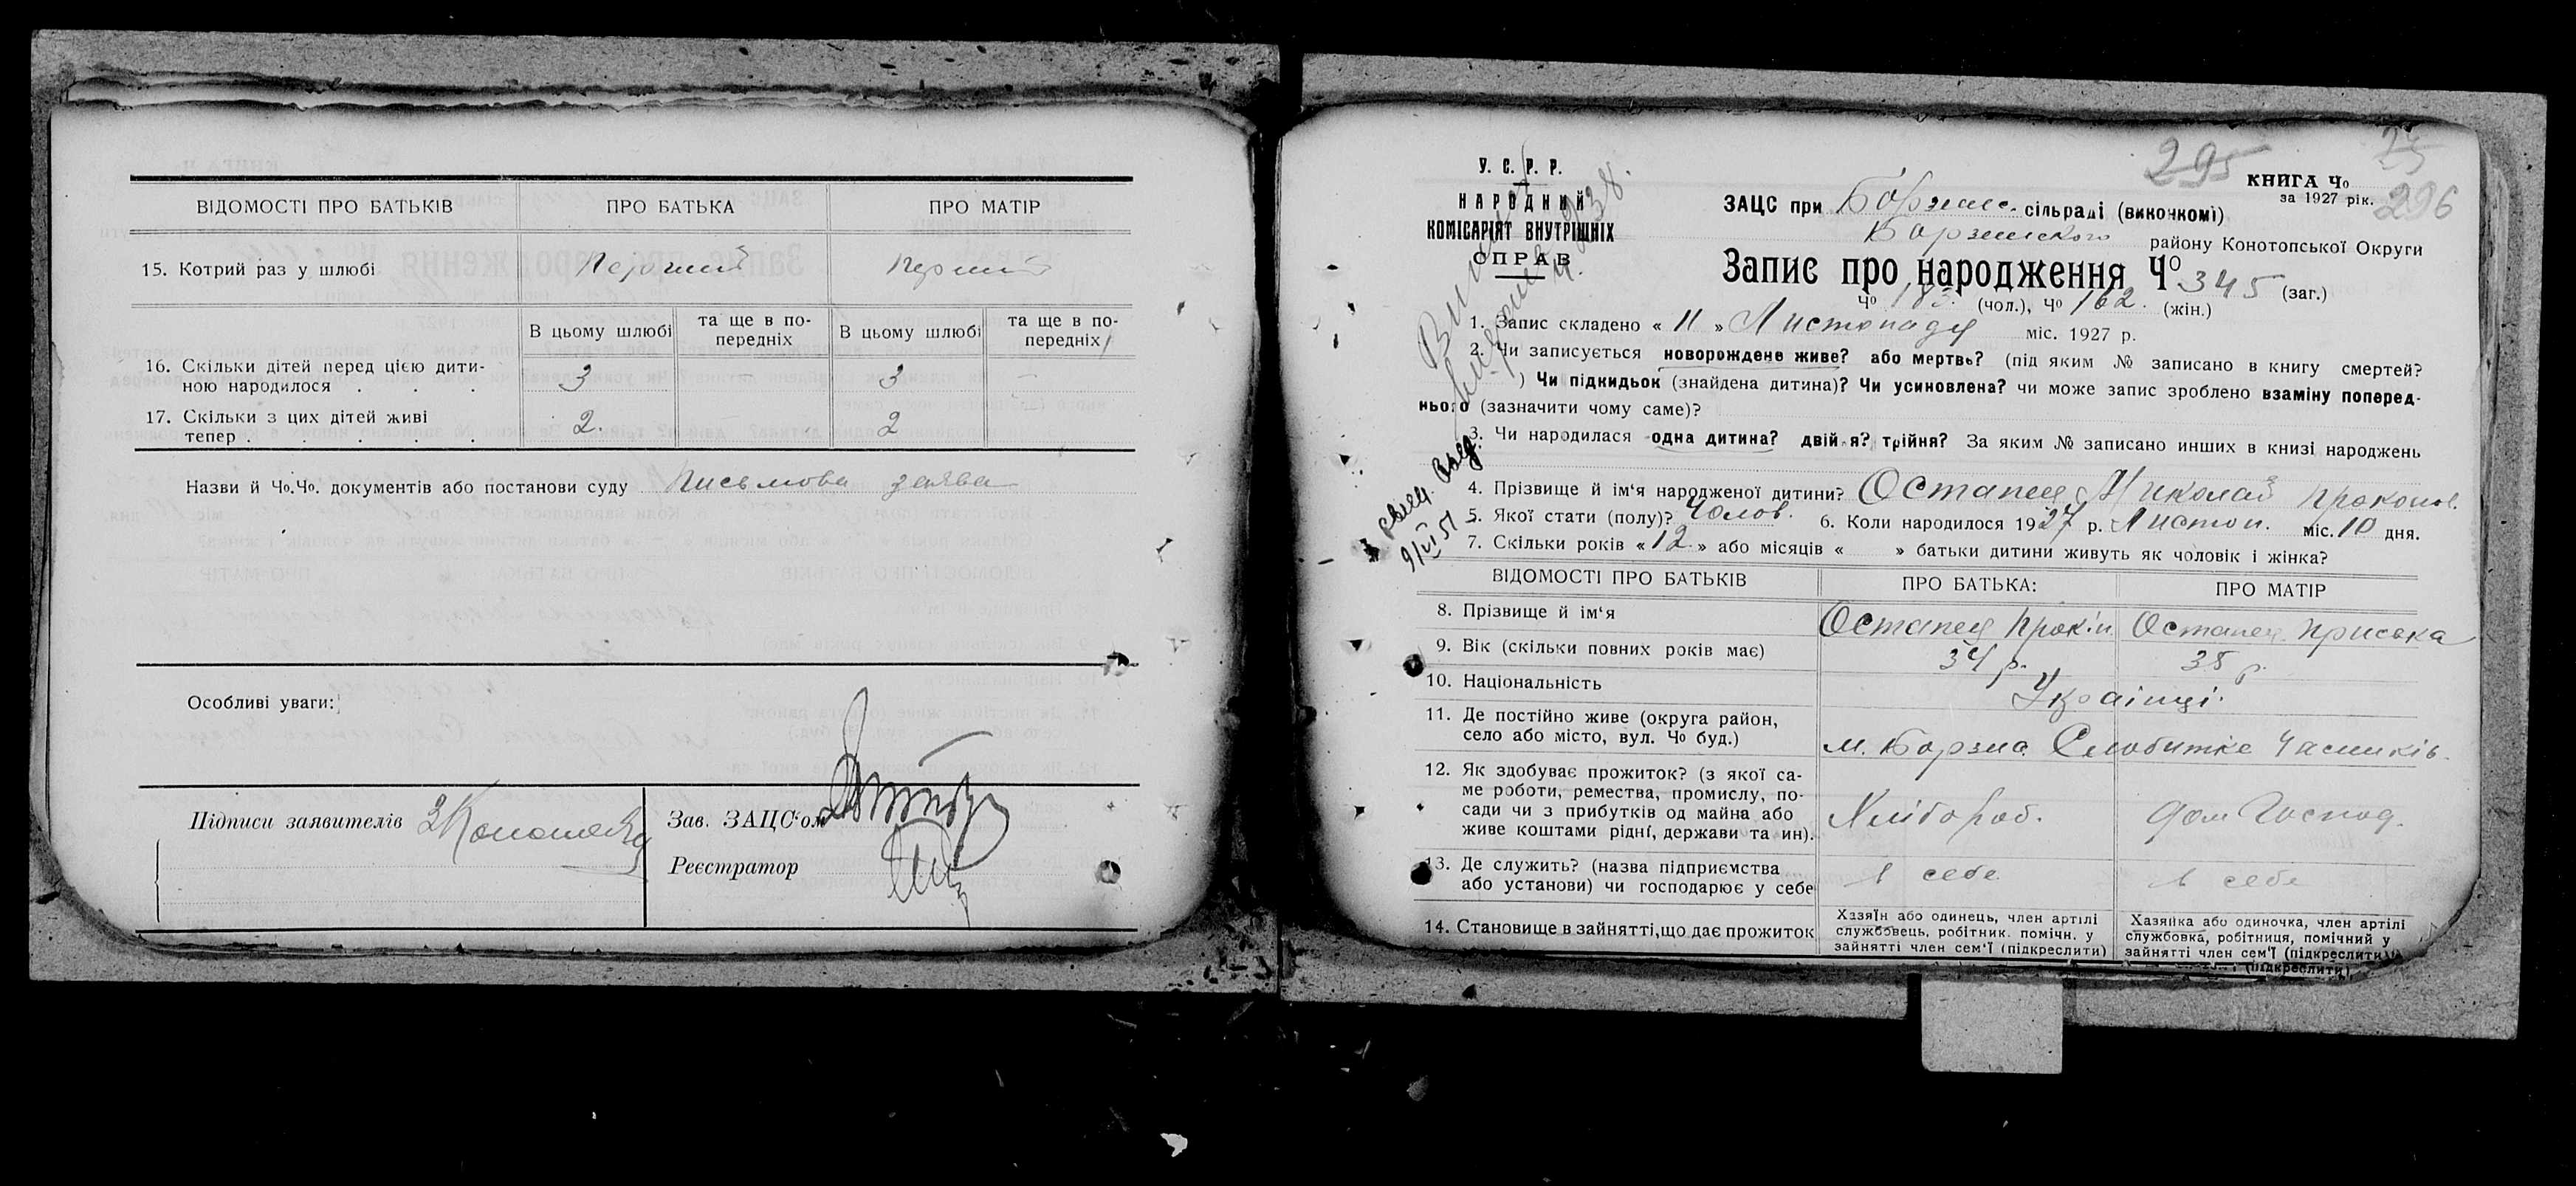 ВІДОМОСТІ ПРО БАТЬКІВ ПРО БАТЬКА ПРО МАТІР
15. Котрий раз у шлюбі Перший Перший
В цьому шлюбі та ще в по-передніх В цьому шлюбі та ще в по-передніх
16. Скільки дітей перед цією дити-
ною народилося . . . 3 — 3 —
17. Скільки з цих дітей живі
тепер . . . . . 2. — 2
Назви й Чо.Чо. документів або постанови суду Письмова заява
Особливі уваги:
Підписи заявителів
Зав. ЗАЦС'ом
Реєстратор
У. С. Р. Р.
НАРОДНИЙ
КОМІСАРІЯТ ВНУТРІШНІХ
ОПРАВ
295
296
КНИГА Чо
за 1927 рік.
ЗАЦС при Борзенс. сільраді (виконкомі)
Борзенского району Конотопської Округи
Запис про народження Чо 345 (заг.)
Чо 183. (чол.), Чо 162. (жін.)
1. Запис складено « 11 » Листопаду міс. 1927 р.
2. Чи записується новорождене живе? або мертве? (під яким № записано в книгу смертей?
) Чи підкидьок (знайдена дитина)? Чи усиновлена? чи може запис зроблено взаміну поперед-
нього (зазначити чому саме)?
3. Чи народилася одна дитина? двійня? трійня? За яким № записано инших в книзі народжень
4. Прізвище й ім'я народженої дитини? Остапец Миколай Прокопов.
5. Якої стати (полу)? Чолов. 6. Коли народилося 1927 р. Листоп. міс. 10 дня.
7. Скільки років « 12 » або місяців « » батьки дитини живуть як чоловік і жінка?
9/VI 51
ВІДОМОСТІ ПРО БАТЬКІВ ПРО БАТЬКА: ПРО МАТІР
8. Прізвище й ім'я Остапец Прокіп Остапец Приська
9. Вік (скільки повних років має) 34 р. 38 р.
10. Національність Українці.
11. Де постійно живе (округа район,
село або місто, вул. Чо буд.) м. Борзна Слобитке Часників.
12. Як здобуває прожиток? (з якої са-
ме роботи, ремества, промислу, по-
сади чи з прибутків од майна або
живе коштами рідні, держави та ин). Хлібороб. Дом Господ.
13. Де служить? (назва підприємства
або установи) чи господарює у себе в себе в себе
14. Становище в зайнятті, що дає прожиток
Хазяїн або одинець, член артілі
службовець, робітник. помічн. у
зайнятті член сем'ї (підкреслити)
Хазяйка або одиночка, член артілі
службовка, робітниця, помічний у
зайнятті член сем'ї (підкреслити)
(підкреслити)